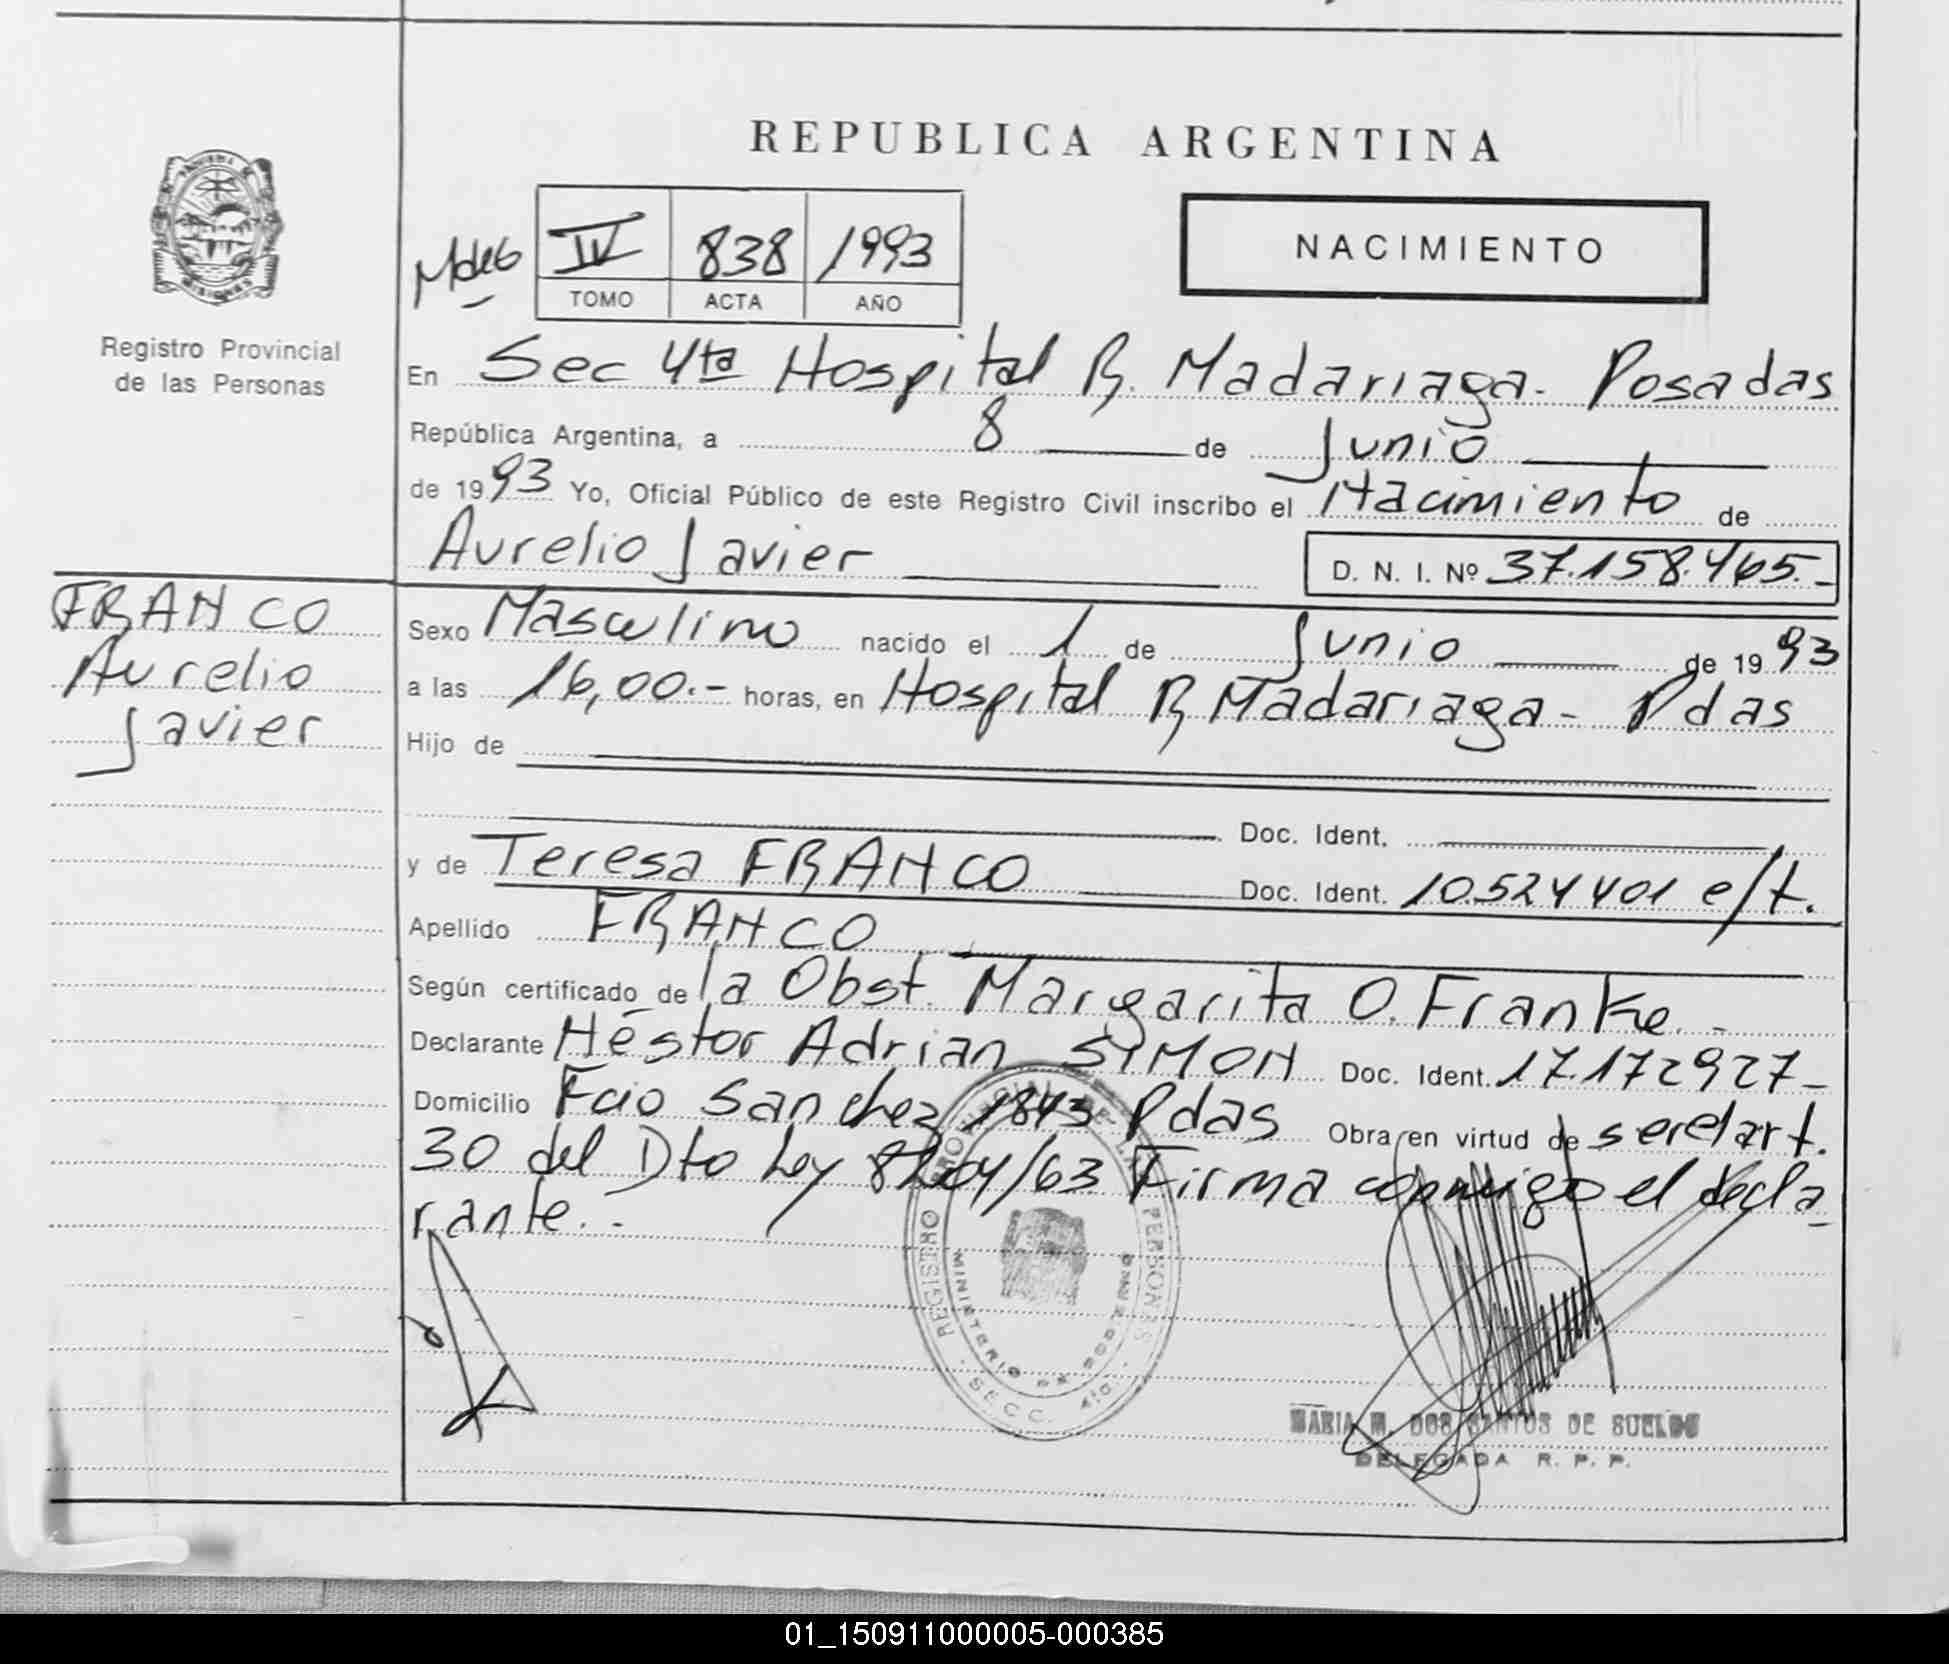 REPUBLICA ARGENTINA
IV 838 1993
TOMO ACTA AÑO
NACIMIENTO
Registro Provincial
de las Personas
En Sec 4ta Hospital R. Madariaga - Posadas
República Argentina, a 8 de Junio
de 1993 Yo, Oficial Público de este Registro Civil inscribo el Nacimiento de
Aurelio Javier D. N. I. Nº 37.158.465.-
FRANCO
Aurelio
Javier
Sexo Masculino nacido el 1 de Junio de 1993
a las 16,00.- horas, en Hospital R Madariaga - Pdas
Hijo de
Doc. Ident.
y de Teresa FRANCO Doc. Ident. 10.524401 e/t.
Apellido FRANCO
Según certificado de la Obst. Margarita O. Franke.-
Declarante Héstor Adrian SYMON Doc. Ident. 17.172927-
Domicilio Fcio Sanchez 1843 Pdas Obra en virtud de se relart.
30 del Dto Ley 8204/63 Firma conmigo el decla
rante.-
REGISTRO PROVINCIAL DE LAS PERSONAS
MINISTERIO DE GOBIERNO
SECC. 4ta.
MARIA M. DOS SANTOS DE SUELDO
DELEGADA R. P. P.
01_150911000005-000385